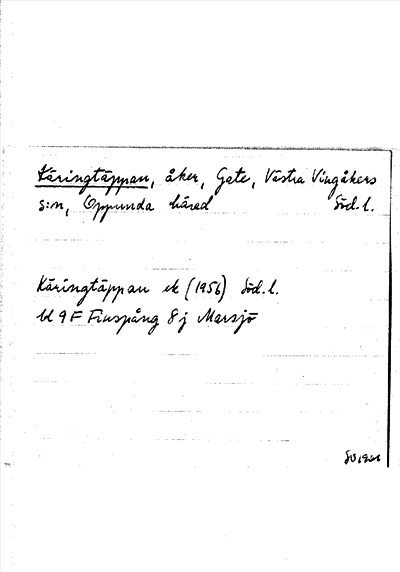 Käringtäppan, åker, Gate, Västra Vingåkers
s:n, Oppunda härad Söd.l.
Käringtäppan ek (1956) Söd.l.
bl 9F Finspång 8j Marsjö